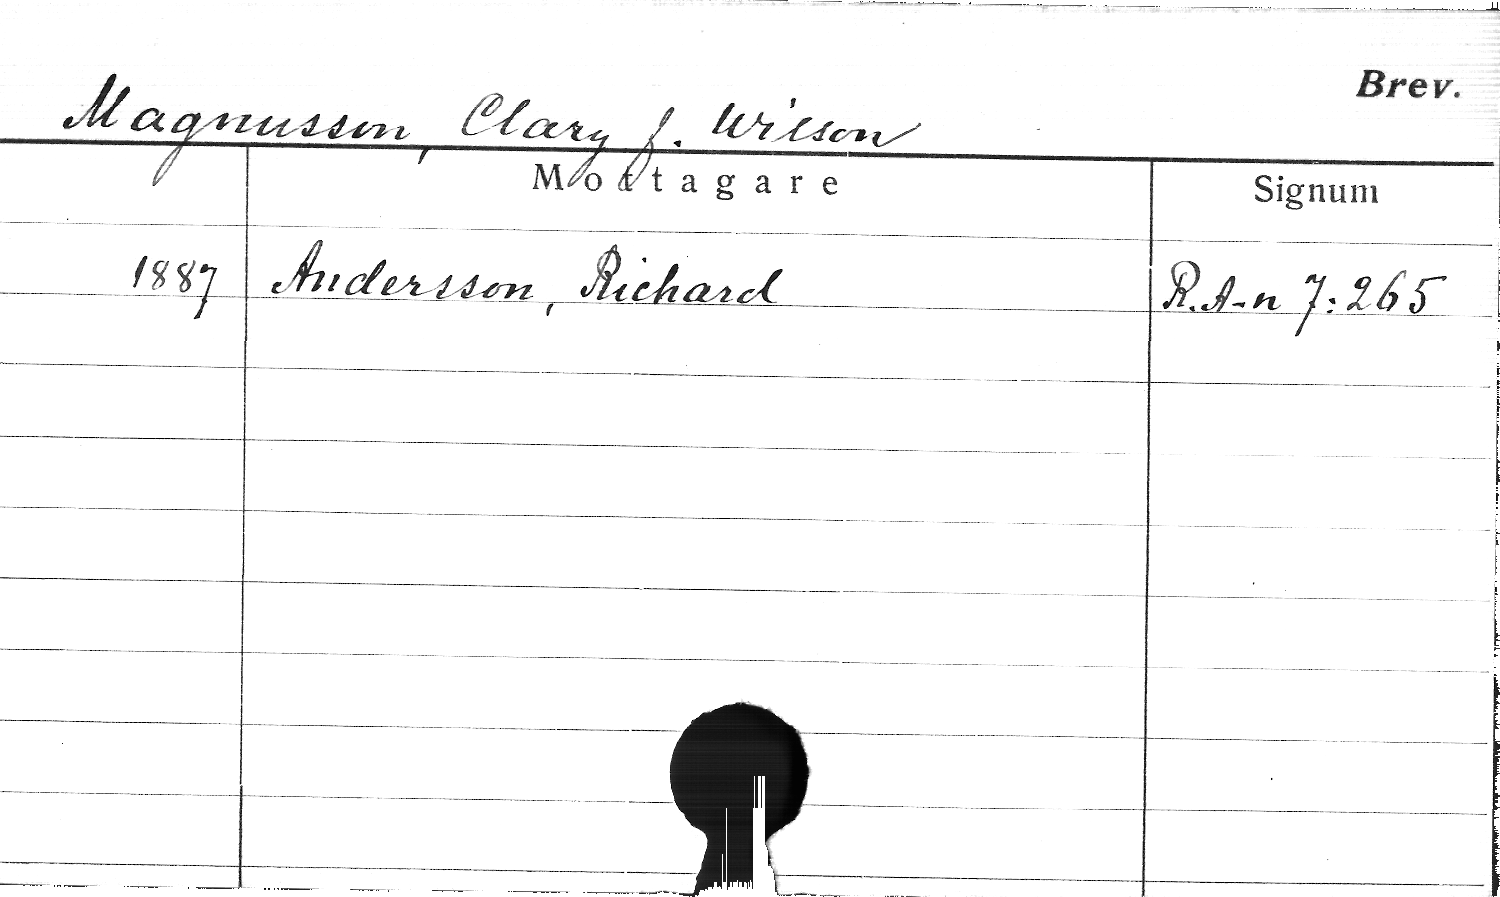 Brev.
Magnusson, Clary f. Wilson
Mottagare Signum
1887 Andersson, Richard R.A-n 7:265